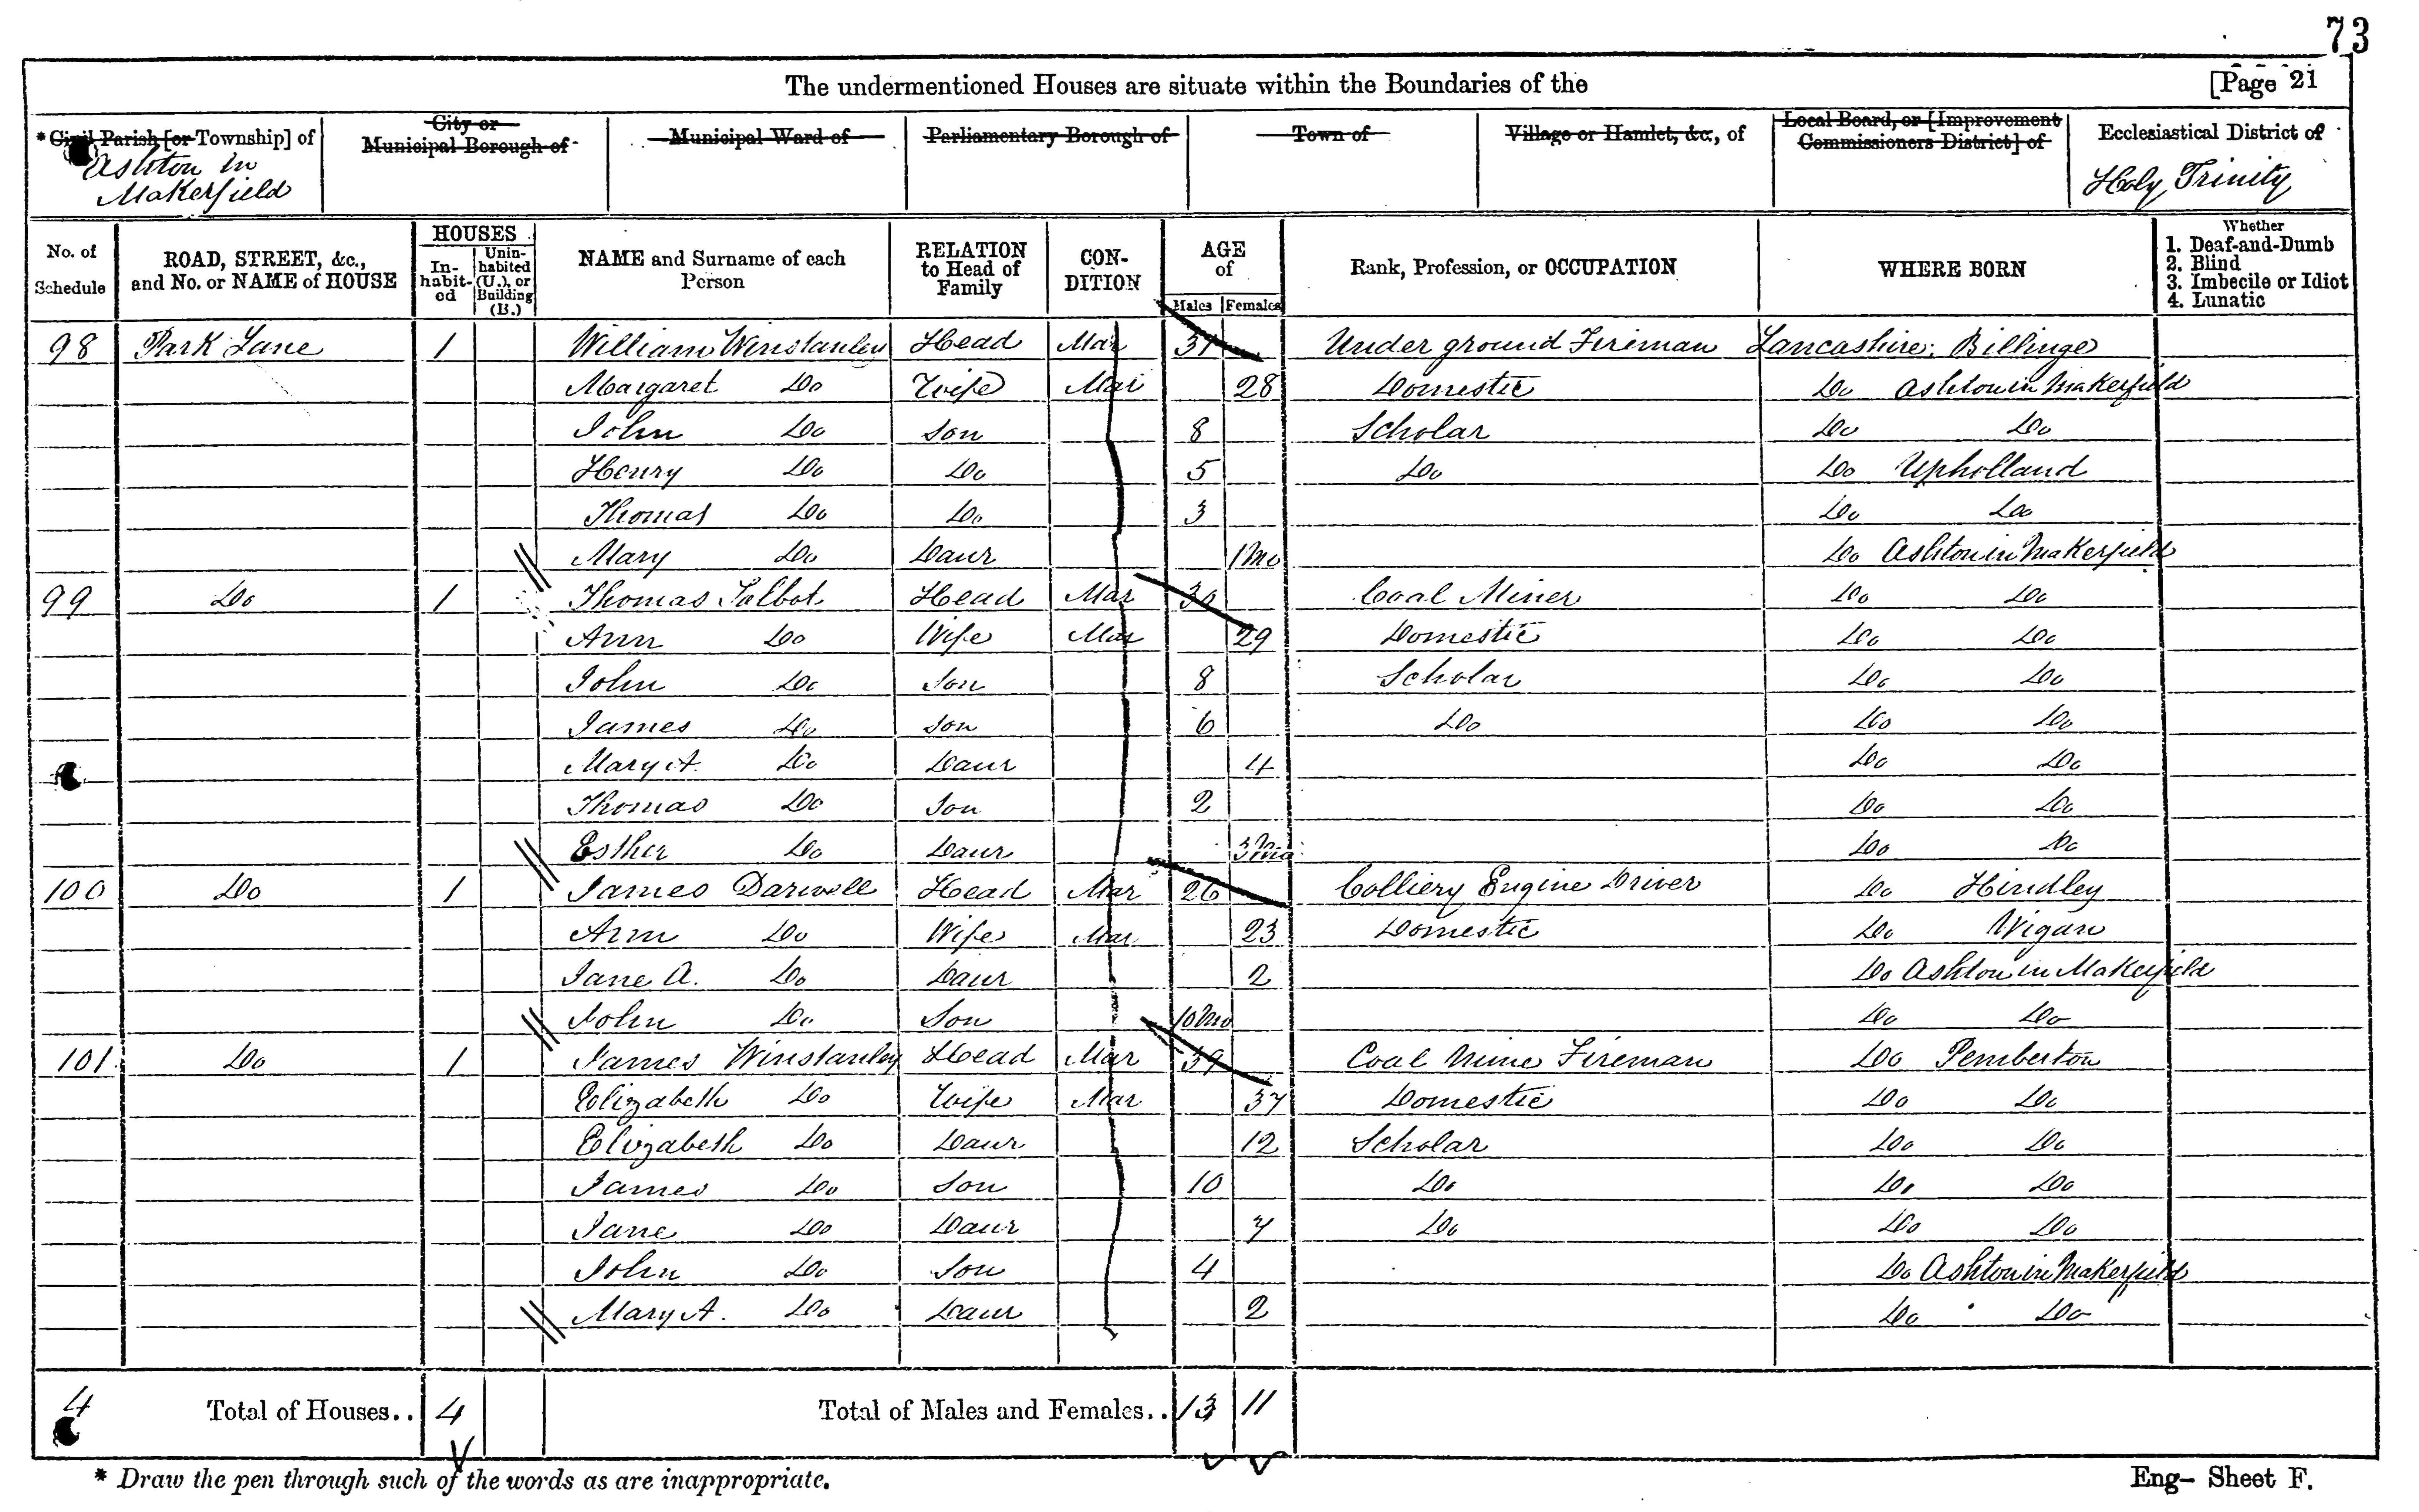 73
The undermentioned Houses are situate within the Boundaries of the [Page 21
* Civil Parish [or Township] of City or Municipal Borough of Municipal Ward of Parliamentary Borough of Town of Village or Hamlet, &c., of Local Board, or [Improvement Commissioners District] of Ecclesiastical District of
Ashton in Makerfield Holy Trinity
No. of Schedule ROAD, STREET, &c., and No. or NAME of HOUSE HOUSES Inhabited Uninhabited (U.), or Building (B.) NAME and Surname of each Person RELATION to Head of Family CONDITION AGE of Males Females Rank, Profession, or OCCUPATION WHERE BORN Whether 1. Deaf-and-Dumb 2. Blind 3. Imbecile or Idiot 4. Lunatic
98 Park Lane 1 William Winstanley Head Mar 31 Under ground Fireman Lancashire; Billinge
Margaret Do Wife Mar 28 Domestic Do Ashton in Makerfield
John Do Son 8 Scholar Do Do
Henry Do Do 5 Do Do Upholland
Thomas Do Do 3 Do Do
Mary Do Daur 1 Mo Do Ashton in Makerfield
99 Do 1 Thomas Talbot Head Mar 30 Coal Miner Do Do
Ann Do Wife Mar 29 Domestic Do Do
John Do Son 8 Scholar Do Do
James Do Son 6 Do Do Do
Mary A. Do Daur 4 Do Do
Thomas Do Son 2 Do Do
Esther Do Daur 3 Mo Do Do
100 Do 1 James Darwell Head Mar 26 Colliery Engine Driver Do Hindley
Ann Do Wife Mar 23 Domestic Do Wigan
Jane A. Do Daur 2 Do Ashton in Makerfield
John Do Son 10 Mo Do Do
101 Do 1 James Winstanley Head Mar 39 Coal Mine Fireman Do Pemberton
Elizabeth Do Wife Mar 37 Domestic Do Do
Elizabeth Do Daur 12 Scholar Do Do
James Do Son 10 Do Do Do
Jane Do Daur 7 Do Do Do
John Do Son 4 Do Ashton in Makerfield
Mary A. Do Daur 2 Do Do
4 Total of Houses.. 4 Total of Males and Females.. 13 11
* Draw the pen through such of the words as are inappropriate. Eng- Sheet F.